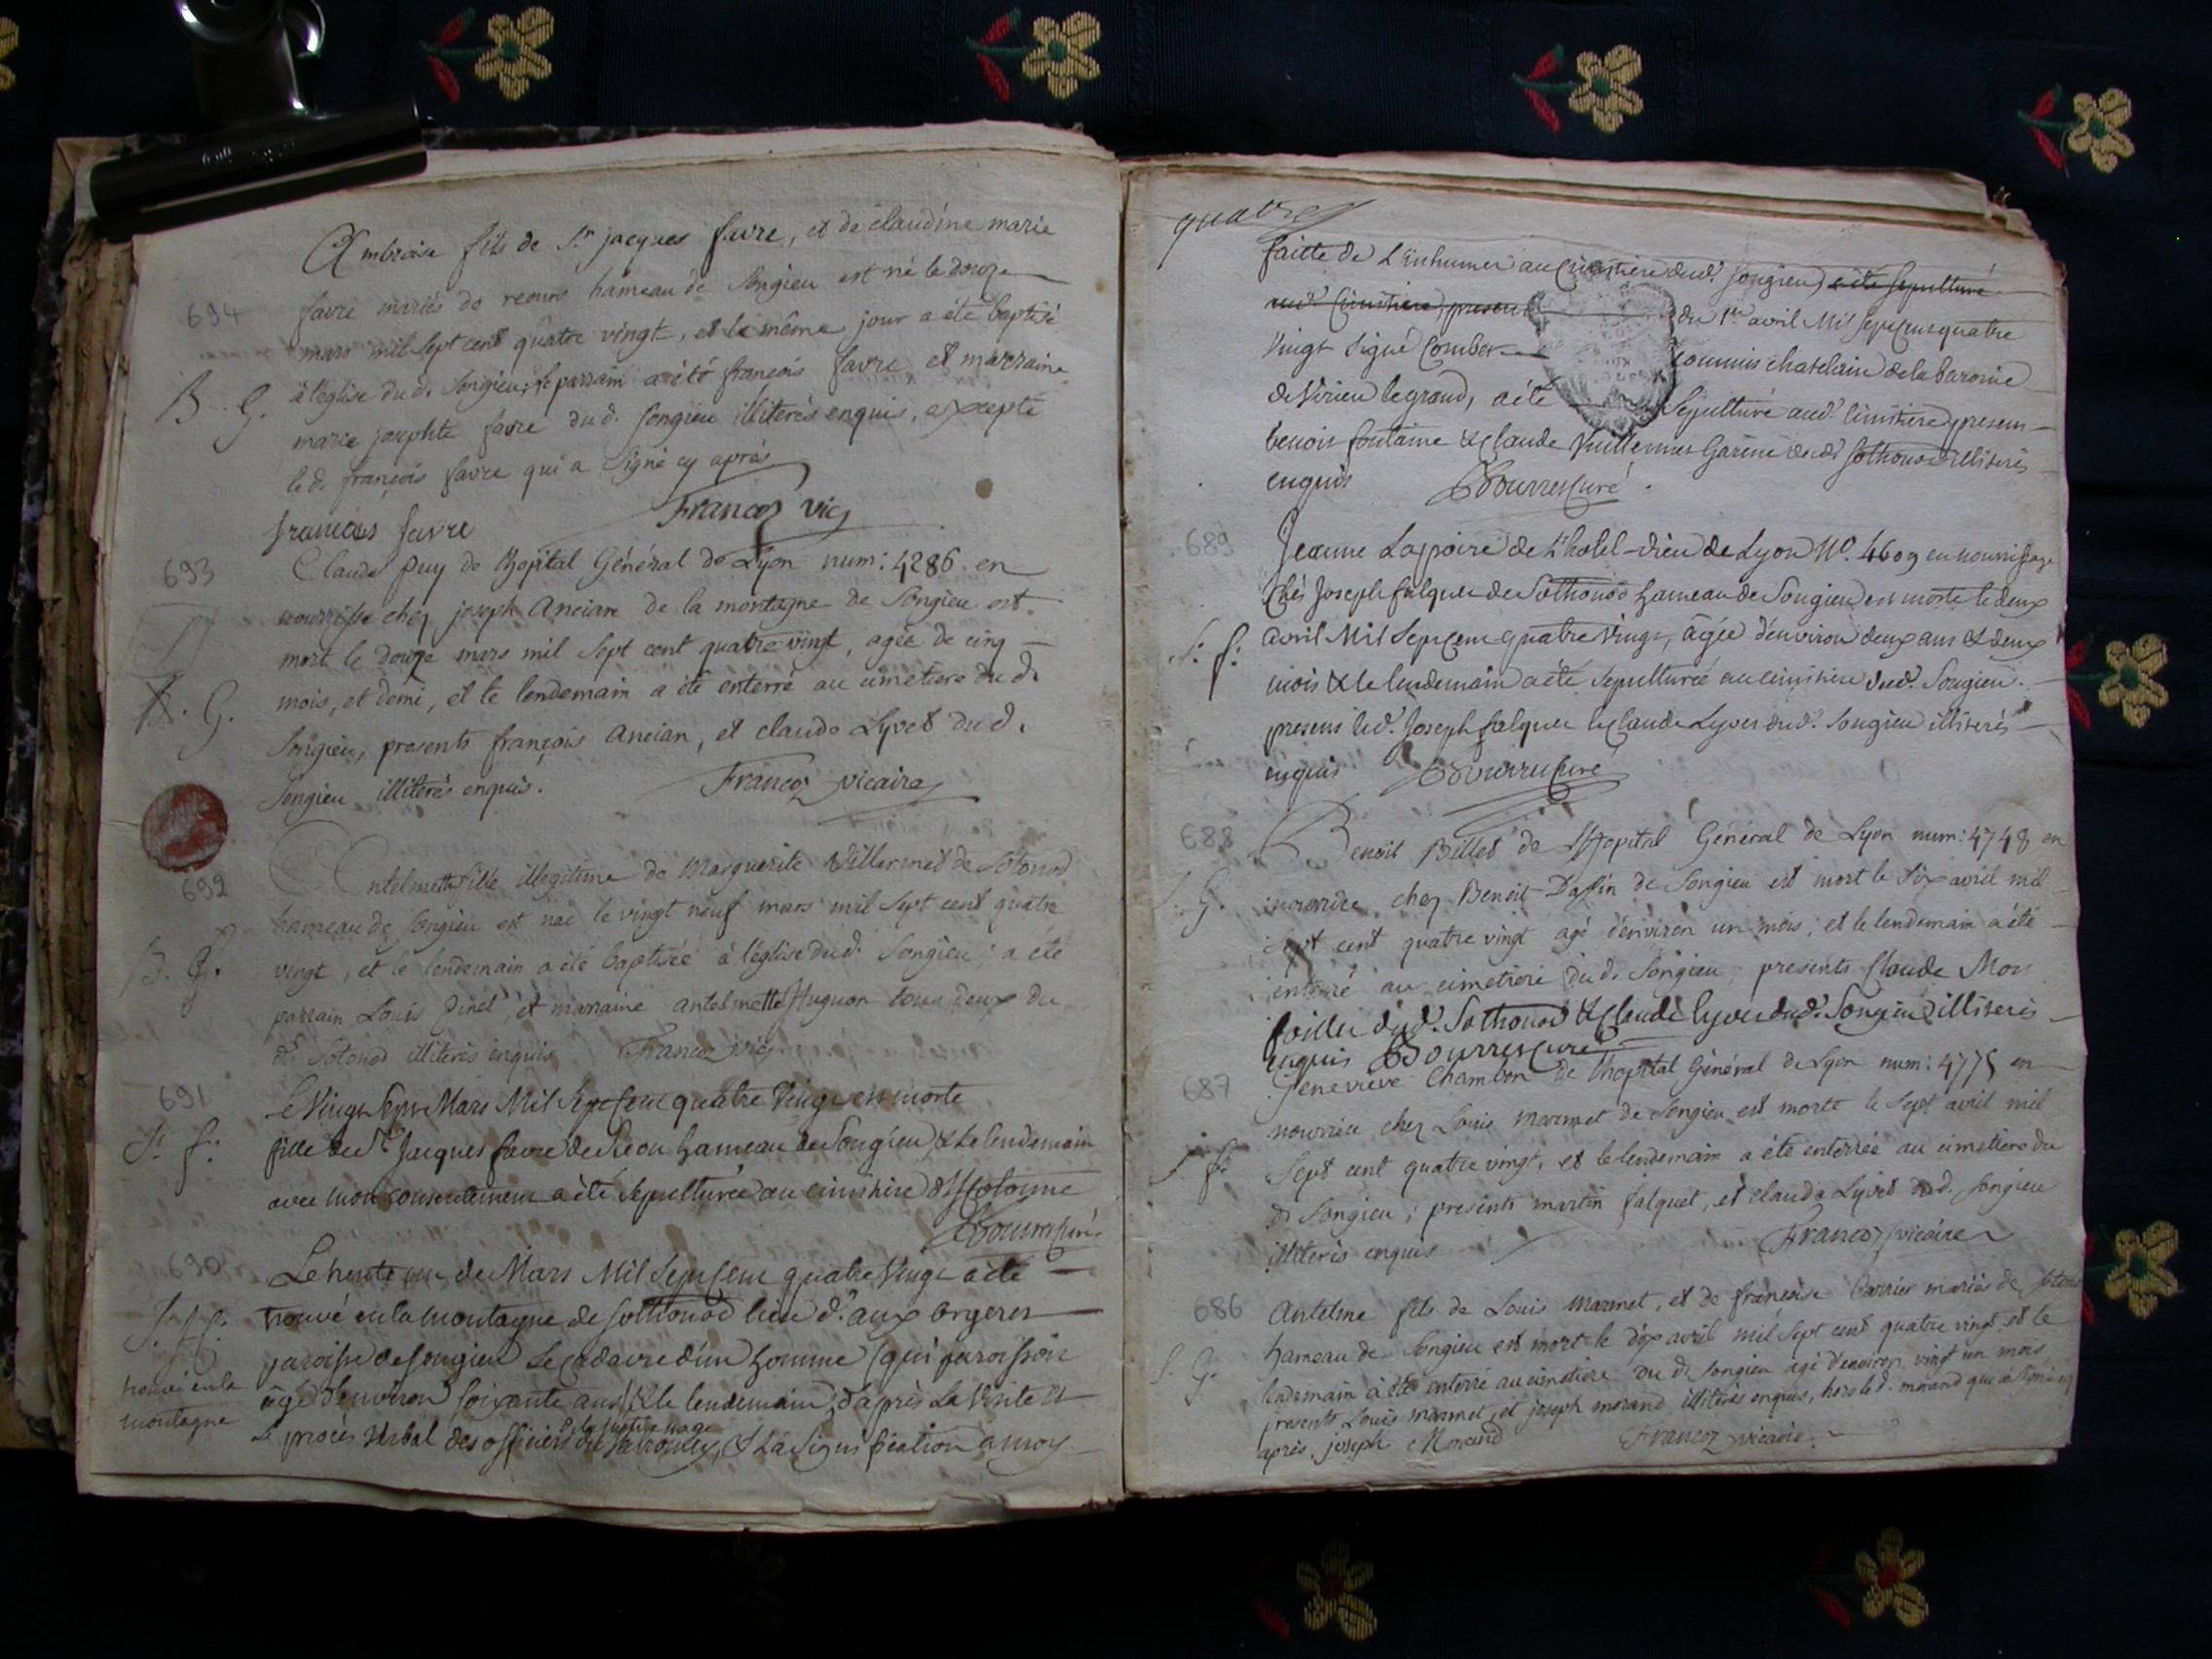 Ambroise fils de Sr jacques favre, et de claudine marie
694
favre mariés de reoux hameau de Songieu est né le douze
mars mil sept cent quatre vingt, et le même jour a été baptisé
B. G.
à l'église du d. Songieu; le parrain a été françois favre et marraine
marie josephte favre du d. Songieu illiterés enquis, excepté
le d. françois favre qui a signé cy après
françois favre Francoz vic
693
Claude Puy de l'hôpital Général de Lyon num: 4286 en
nourrisse chez joseph Ancian de la montagne de Songieu est
mort le douze mars mil sept cent quatre vingt, agée de cinq
S. G.
mois, et demi, et le lendemain a été enterré au cimetiere du d.
Songieu, presents françois Ancian, et claude Lyvet du d.
Songieu illiterés enquis. Francoz vicaire
692
Antelmette fille illegitime de Marguerite Villermet de Sotonod
hameau de Songieu est née le vingt neuf mars mil sept cent quatre
B. G.
vingt, et le lendemain a été baptisée à l'église du d. Songieu; a été
parrain Louis Pinet, et marraine antelmette Huguon tous deux du
d. Sotonod illiterés enquis Francoz vic
691
Le Vingt Sept Mars Mil Sept Cent quatre Vingt est morte
S. f.
fille de Sr Jacques favre de Reou hameau de Songieu, & le lendemain
avec mon consentement a été sepulturée au cimitière d'Hotonne
Bourre Curé
690
Le trente un de Mars Mil Sept Cent quatre Vingt a été
trouvé en la montagne de Sothonod lieu d. aux orgeres
paroisse de Songieu le cadavre d'un homme (qui paroissoit
trouvé en la
montagne
âgé d'environ soixante ans) & le lendemain, d'après la Visite &
de la justice mage
le procès Verbal des officiers & la Signification a moy
quatre
faitte de L'inhumer au Cimitiere dud. Songieu, a été sepulturé
aud. Cimitiere, present du 1er avril Mil sept cens quatre
Vingt Signé Comber commis chatelain de la baronie
de Virieu le grand, a été Sepulturé aud. Cimitiere, presens
benoit fontaine & Claude Vuillermet Garine du d. Sothonod illiterés
enquis Bourre Curé
689
Jeanne Lapoire de L'hotel-Dieu de Lyon No. 4609 en nourrissage
Chés Joseph falquet de Sothonod hameau de Songieu est morte le deux
S. f.
avril Mil Sept Cent quatre Vingt, âgée d'environ deux ans & deux
mois & le lendemain a été sepulturée au cimitiere dud. Songieu.
presens led. Joseph falquet & Claude Lyvet dud. Songieu illiterés
enquis Bourre Curé
688
Benoit Billet de L'Hopital Général de Lyon num: 4748 en
S. G.
nourrice chez Benoit Dafin de Songieu est mort le six avril mil
sept cent quatre vingt agé d'environ un mois; et le lendemain a été
enterré au cimetiere du d. Songieu, presents Claude Mon
foillet dud. Sothonod & Claude lyvet dud. Songieu illiterés
enquis Bourre Curé
687
Genevieve Chambon de l'hopital Général de Lyon num: 4775 en
nourrice chez Louis Marmet de Songieu est morte le sept avril mil
S. f.
sept cent quatre vingt, et le lendemain a été enterrée au cimetiere du
d. Songieu; presents martin falquet, et claude Lyvet du d. Songieu
illiterés enquis Francoz vicaire
686
Antelme fils de Louis Marmet, et de françoise Carrier mariés de
hameau de Songieu est mort le dix avril mil sept cent quatre vingt, et le
S. G.
lendemain à été enterré au cimetiere du d. Songieu agé d'environ vingt un mois
presents Louis Marmet, et joseph morand illiterés enquis, hors le d. morand qui a signé cy
après. joseph Morand Francoz vicaire